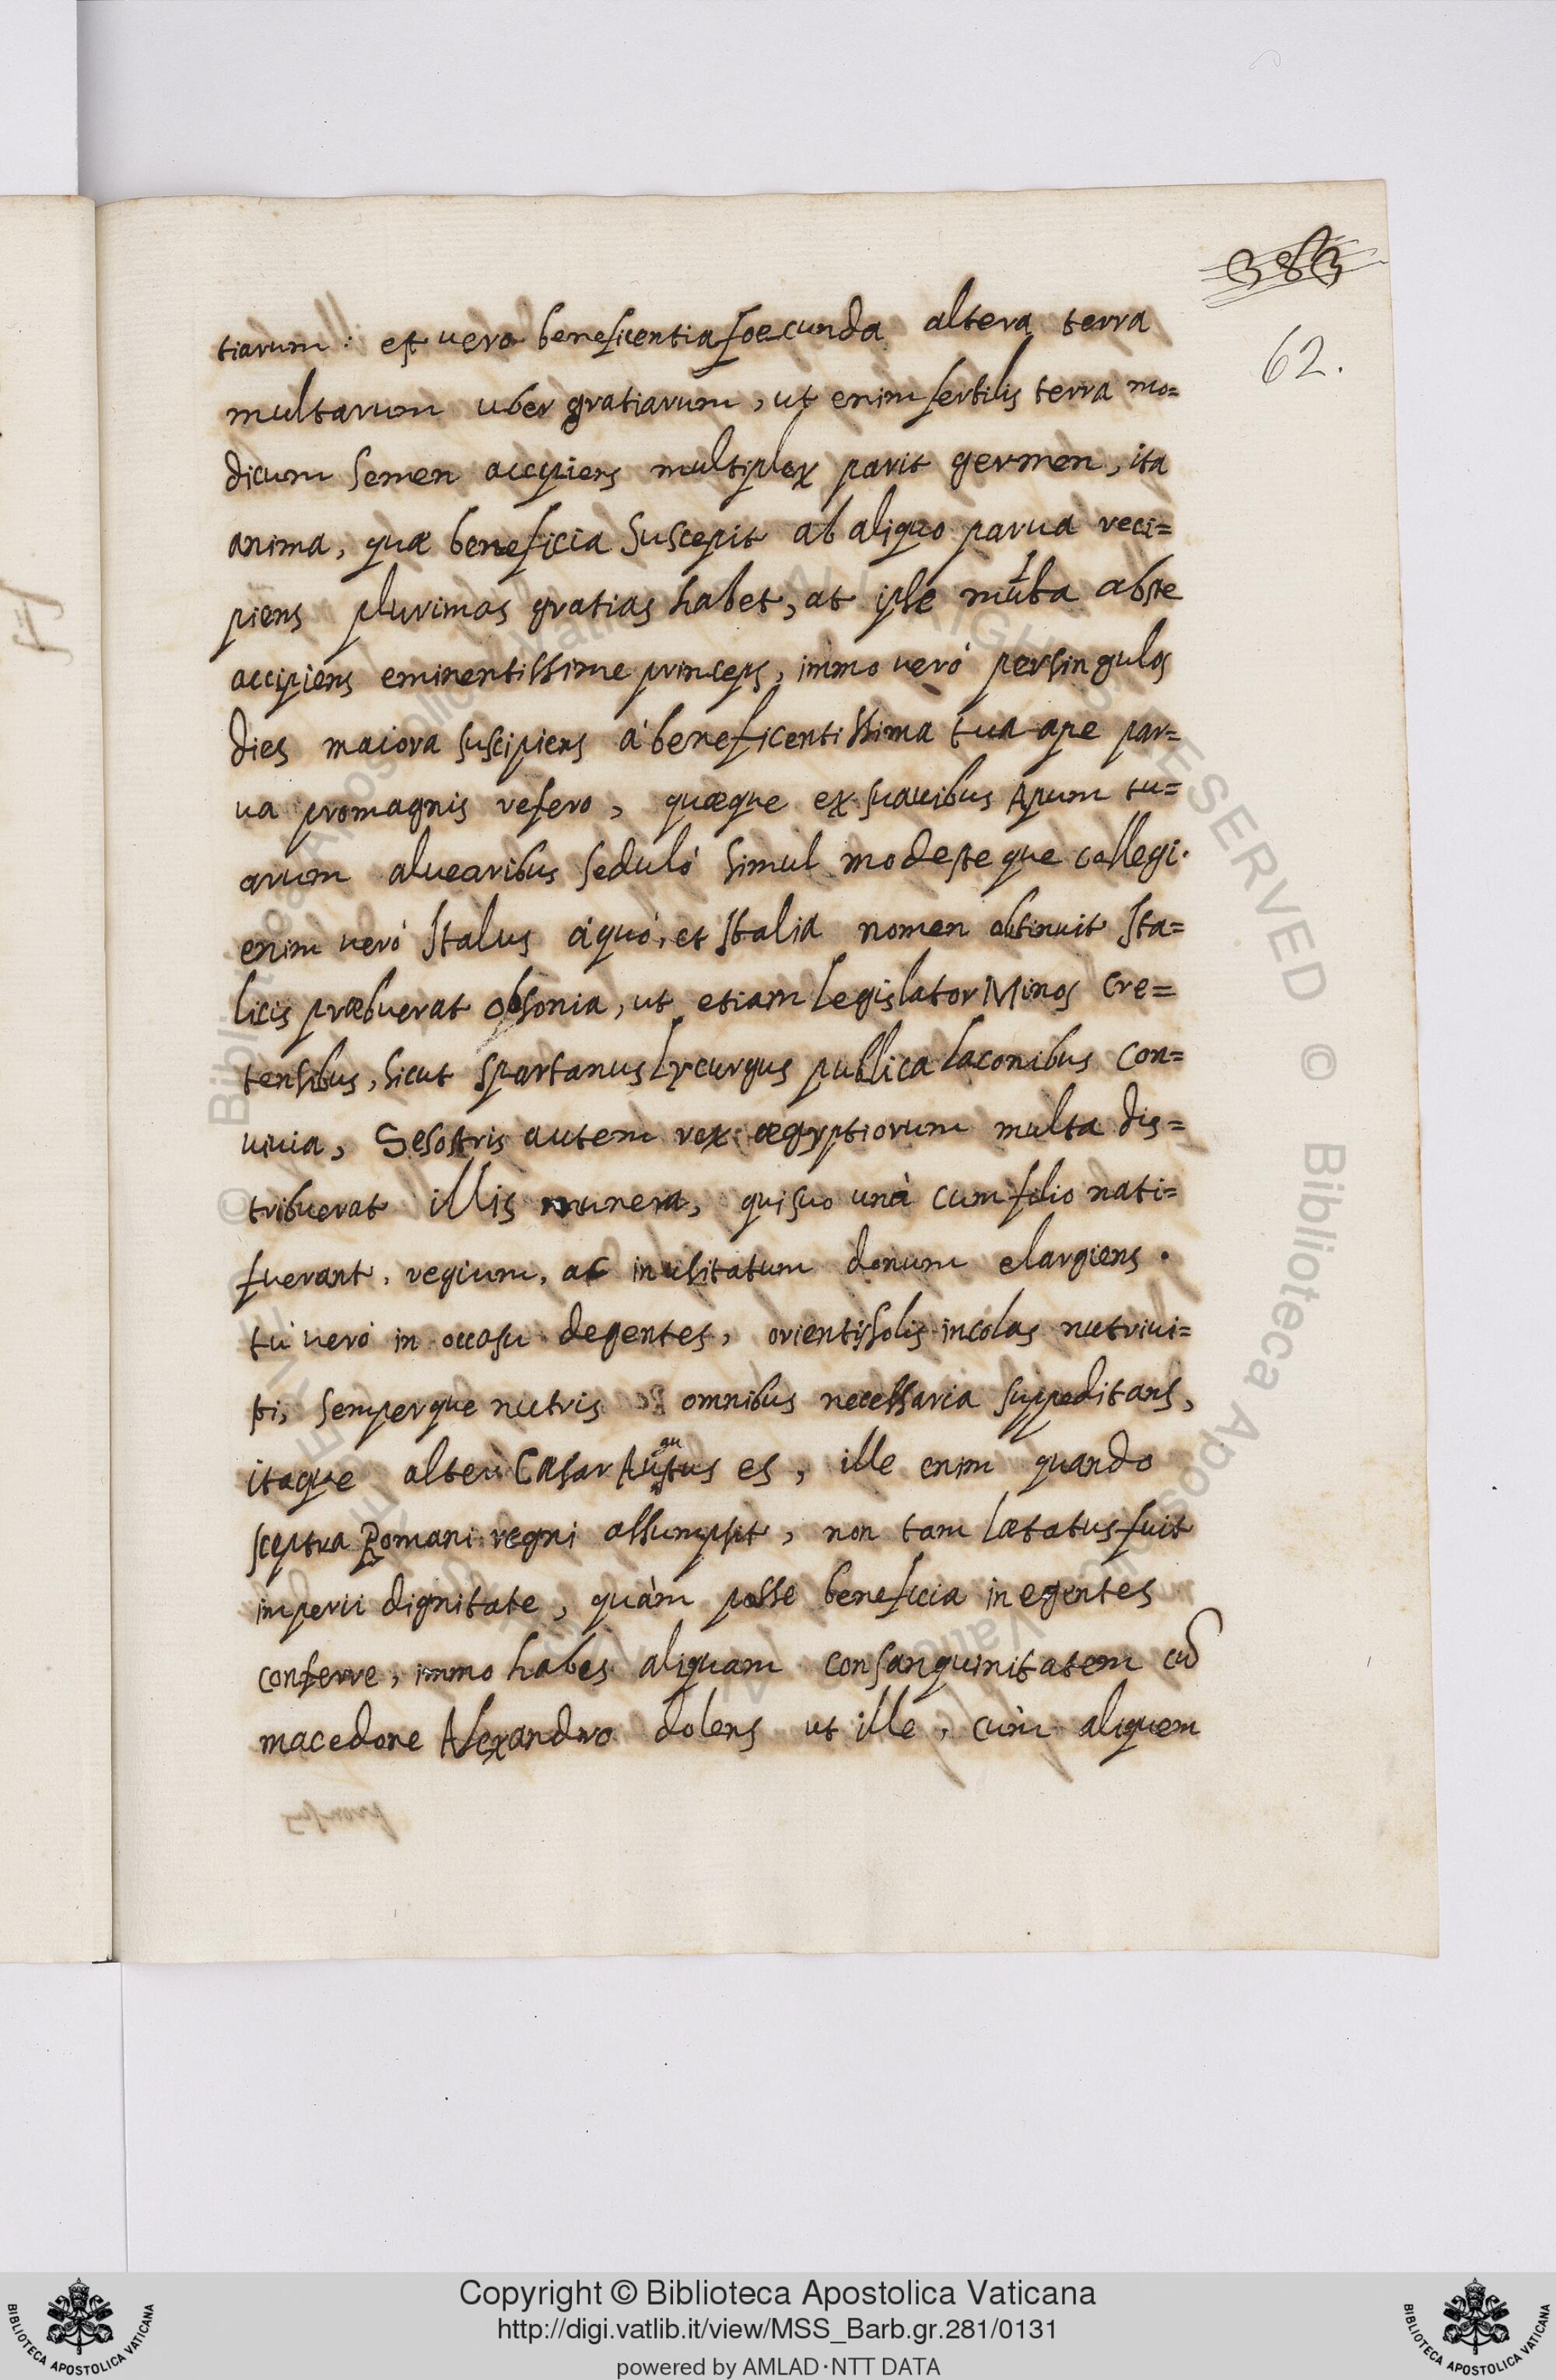 383
62.
tiarum: est vero beneficentia foecunda altera terra
multarum uber gratiarum, ut enim fertilis terra mo=
dicum semen accipiens multiplex parit germen, ita
anima, quæ beneficia suscepit ab aliquo parua reci=
piens plurimas gratias habet, at ipse multa abste
accipiens eminentissime princeps, immo veró persingulos
dies maiora suscipiens á beneficentissima tua ope par=
ua promagnis refero, quæque ex suauibus Apum tu=
arum aluearibus seduló simul modesteque collegi.
enim veró Italus áquó, et Italia nomen obtinuit Ita=
licis præbuerat obsonia, ut etiam legislator Minos Cre=
tensibus, sicut Spartanus Lycurgus publica laconibus con=
uiuia, Sesostris autem rex ægyptiorum multa dis=
tribuerat illis munera, qui suo unà cum filio nati=
fuerant, regium, ac inusitatum donum elargiens.
tú veró in occasu degentes, orientis solis incolas nutriui=
sti, semperque nutris omnibus necessaria suppeditans,
itaque alter Cæsar Augustus es, ille enim quando
sceptra Romani regni assumpsit, non tam lætatus fuit
imperii dignitate, quàm posse beneficia in egentes
conferre, immo habes aliquam consanguinitatem cū
macedone Alexandro dolens ut ille, cùm aliquem
Copyright © Biblioteca Apostolica Vaticana
http://digi.vatlib.it/view/MSS_Barb.gr.281/0131
powered by AMLAD·NTT DATA
BIBLIOTECA APOSTOLICA VATICANA
BIBLIOTECA APOSTOLICA VATICANA